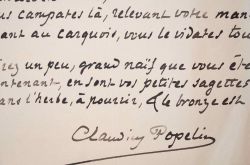 us campates là, relevant votre man
ant au carquois, vous le vidates tou
rez un peu, grand naïf que vous éte
ntenant, en sont vos petites sagettes
ans l'herbe, à pourrir, & le bronze est
Claudius Popelin